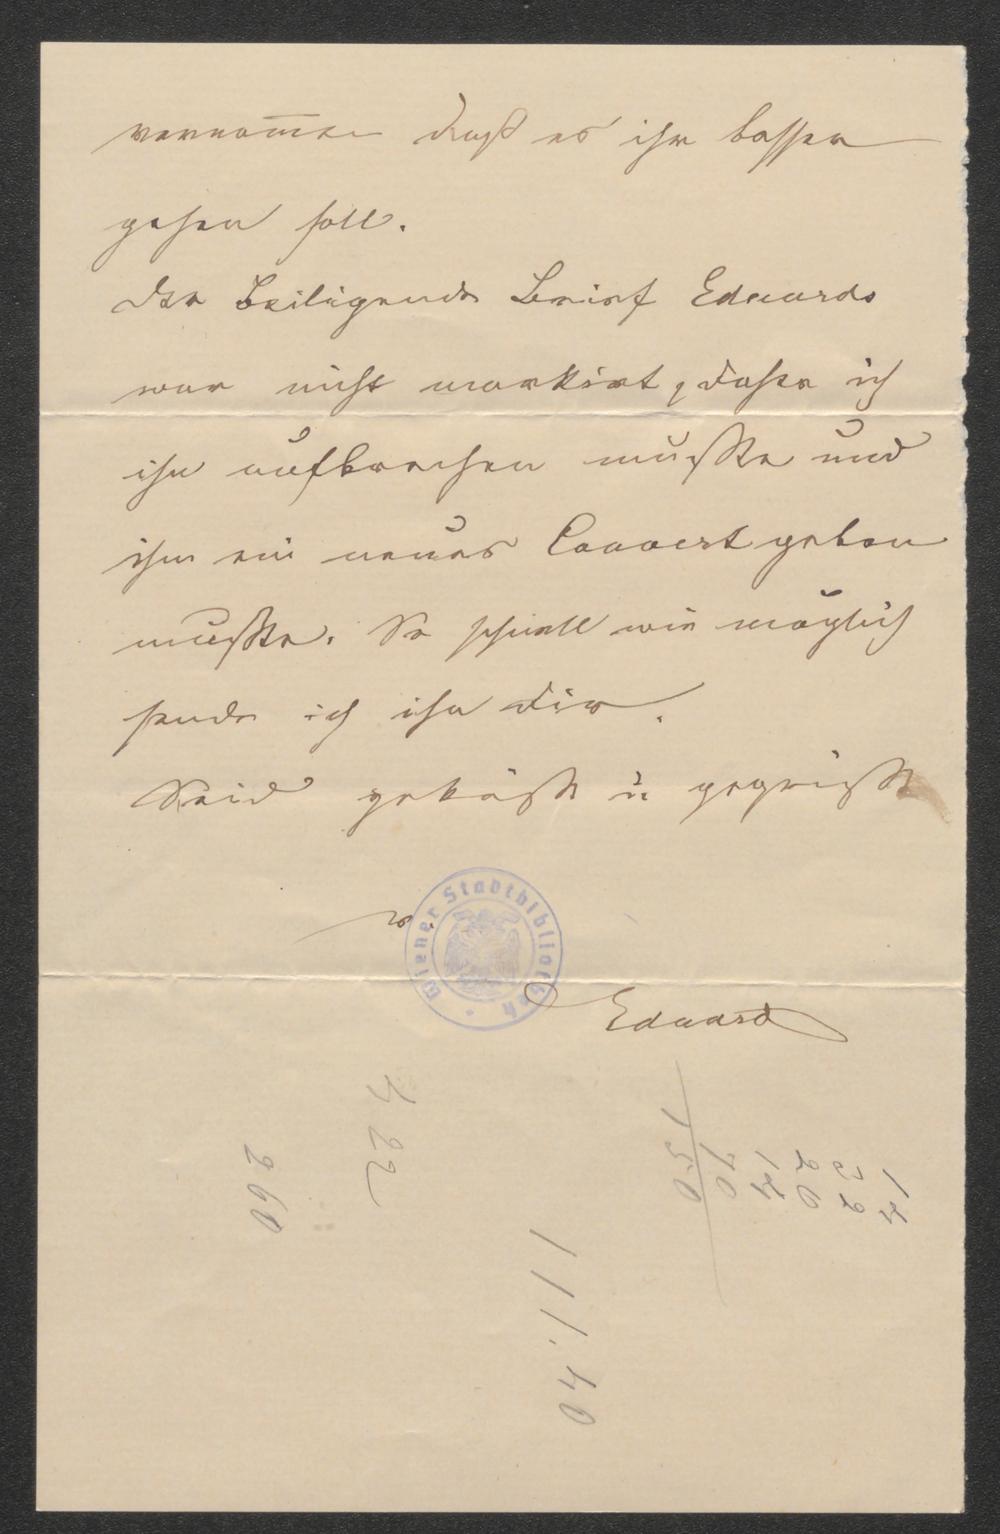 vernom̄en daß es ihr besser
gehen soll.
Der beiliegende Brief Eduards
war nicht markirt, daher ich
ihn aufbrechen mußte und
ihm ein neues Couvert geben
mußte. So schnell wie möglich
sende ich ihn Dir.
Seid geküßt u. gegrüßt
v.
Wiener Stadtbibliothek
Eduard
14
32
20
14
70
150
22
260
111.40